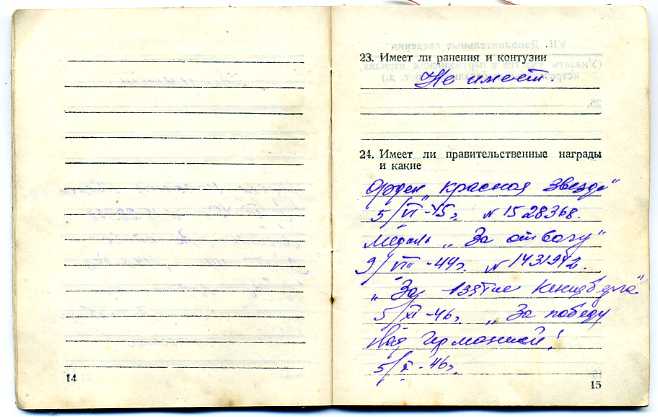 14
23. Имеет ли ранения и контузии
Не имеет.
24. Имеет ли правительственные награды
и какие
Орден „Красная Звезда"
5/VI-45г. №1528368.
Медаль „За отвагу"
9/VIII-44г. №1431972.
„За взятие Кенигсберга"
5/XI-46г. „За победу
над Германией!
5/X-46г.
15